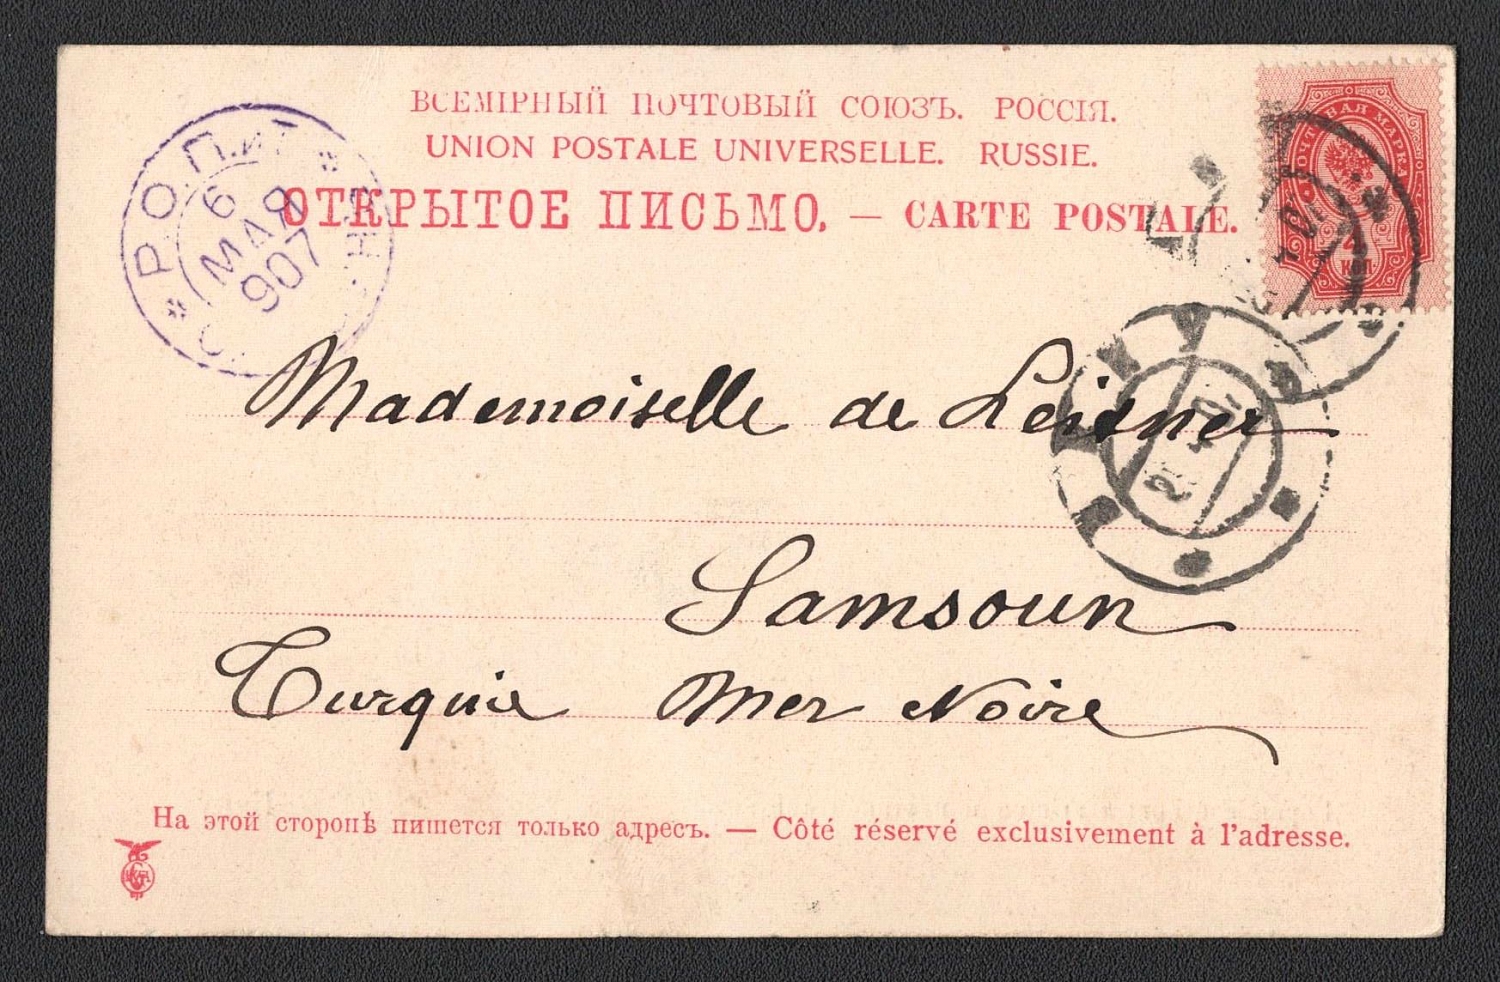 ВСЕМІРНЫЙ ПОЧТОВЫЙ СОЮЗЪ. РОССІЯ.
UNION POSTALE UNIVERSELLE. RUSSIE.
ОТКРЫТОЕ ПИСЬМО. — CARTE POSTALE.
РО.П.и Т.
6 МАР 907
ПОЧТОВАЯ МАРКА
КОП.
БАКУ
Mademoiselle de Leitner
Samsoun
Turquie Mer Noire
На этой сторонѣ пишется только адресъ. — Côté réservé exclusivement à l'adresse.